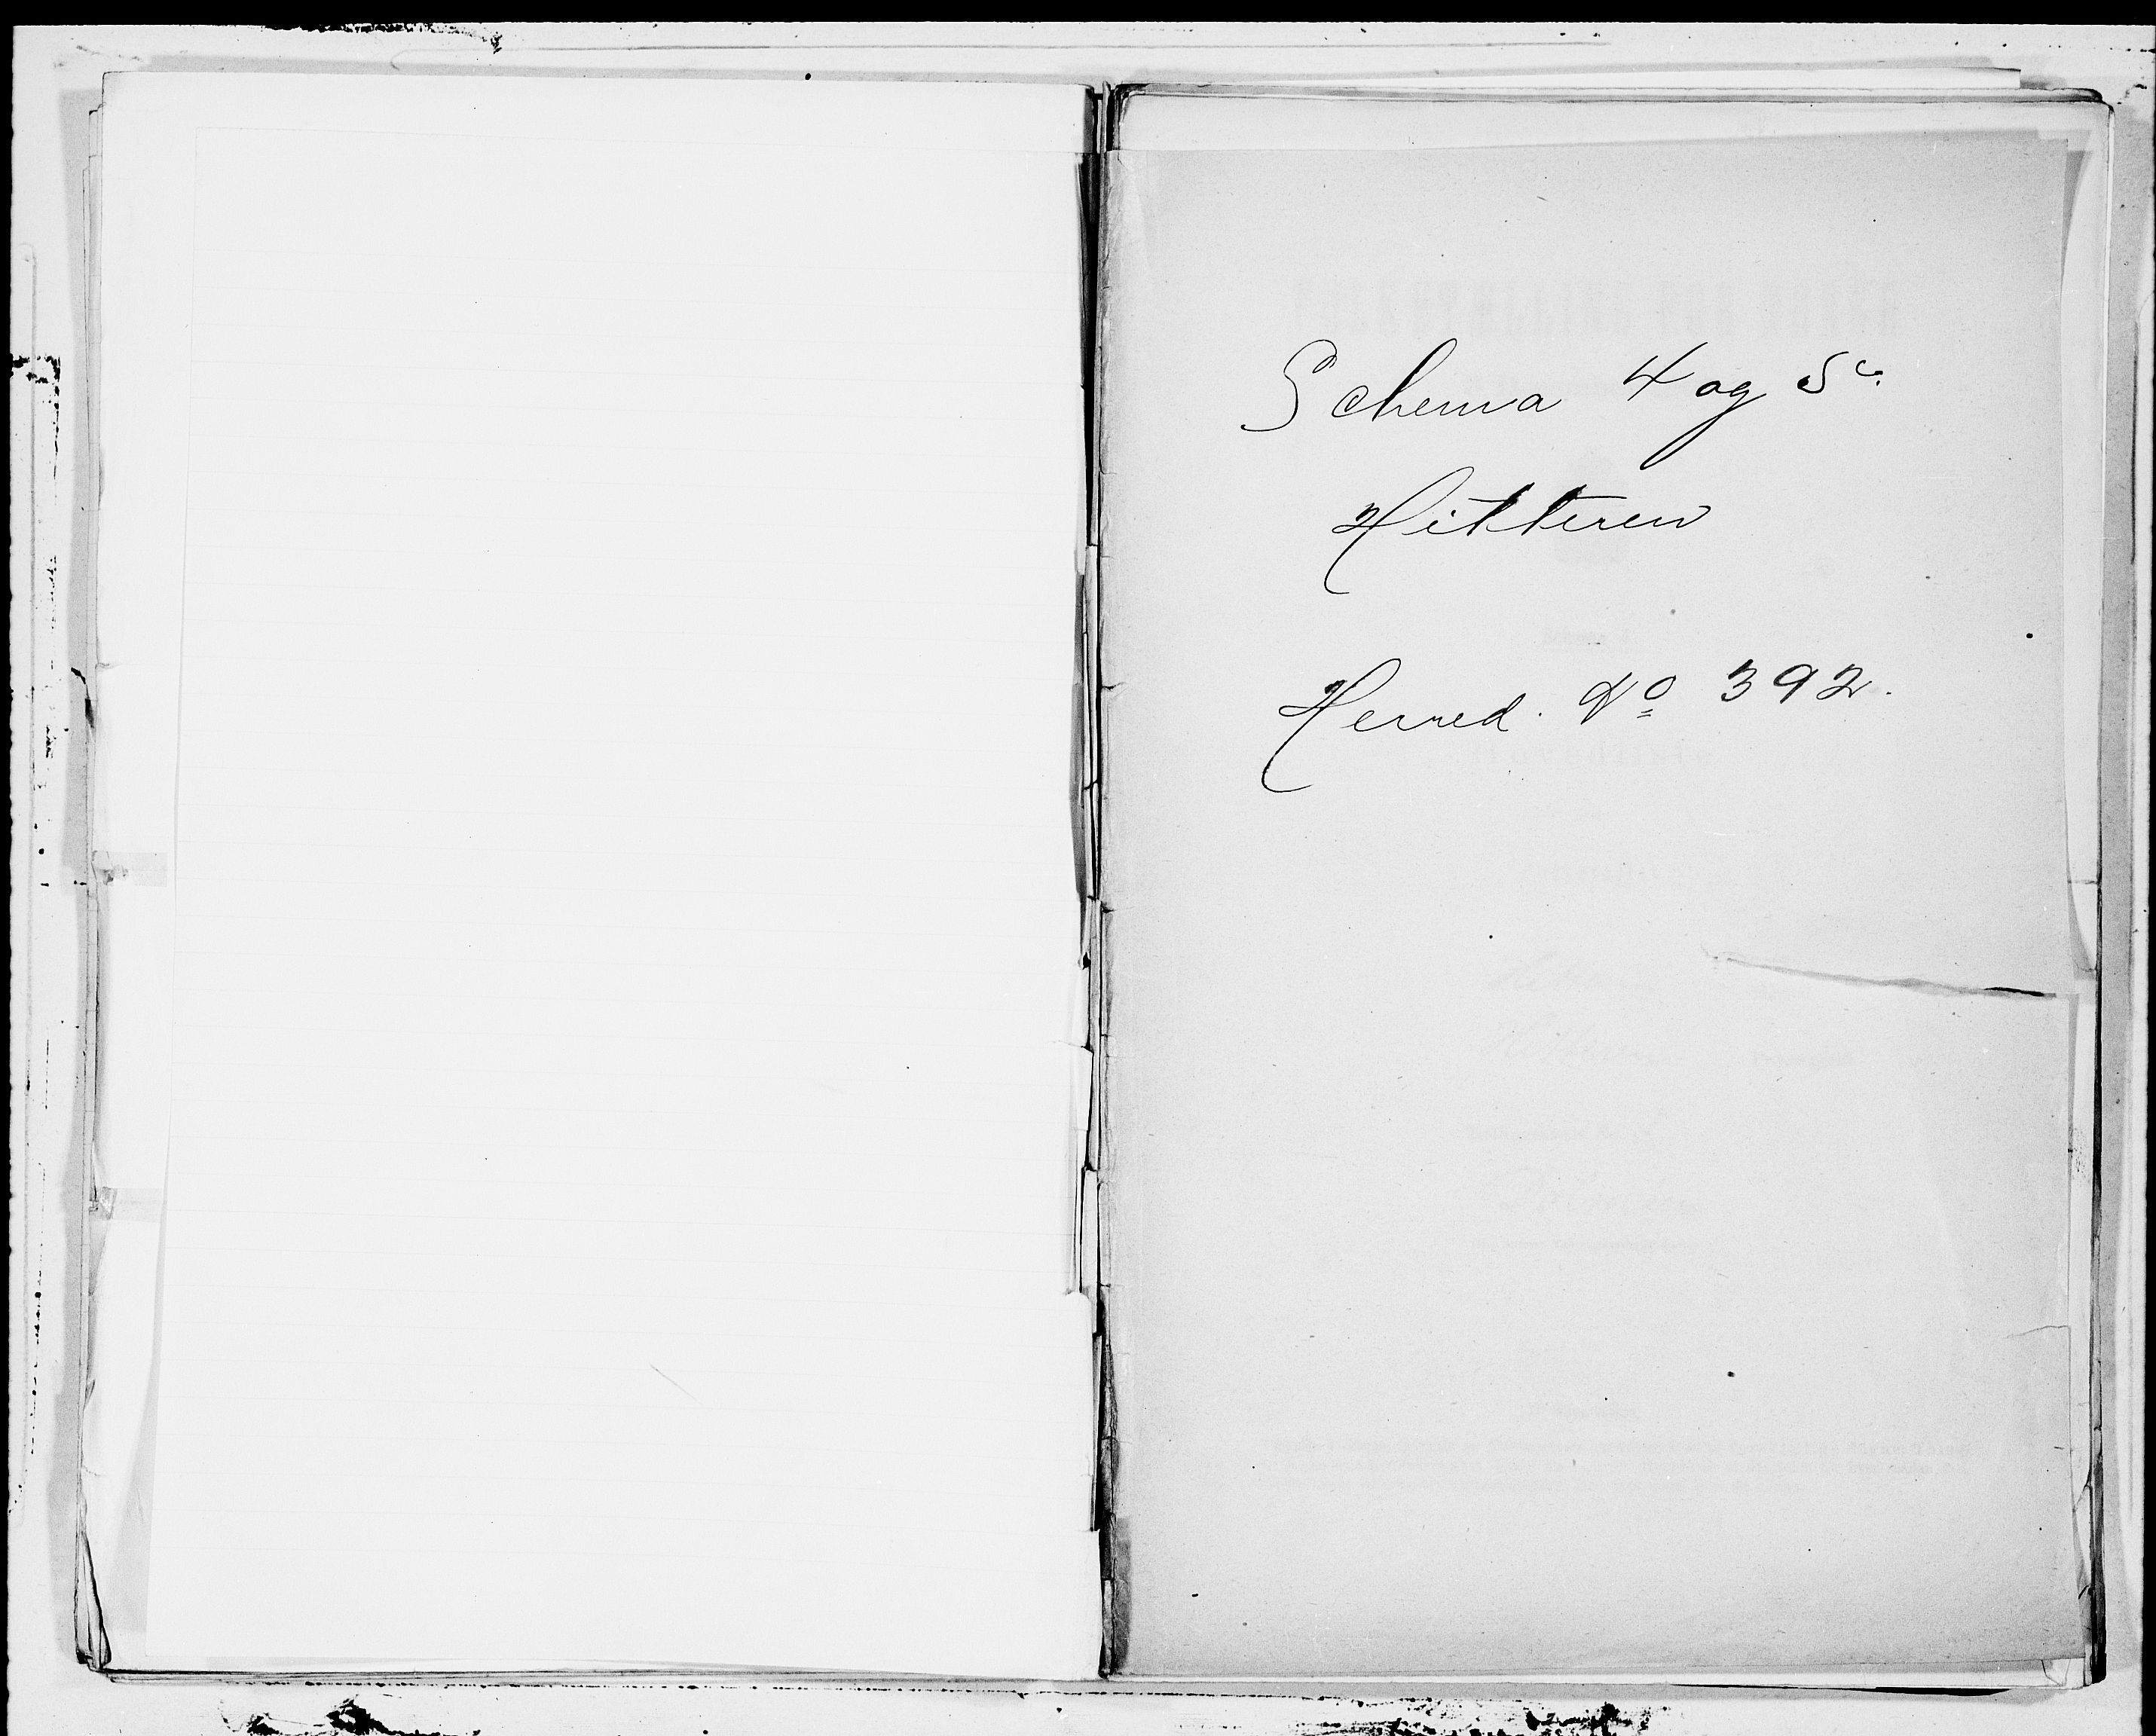 Schema 4 og 5.
Hitteren
Herred. No 392.